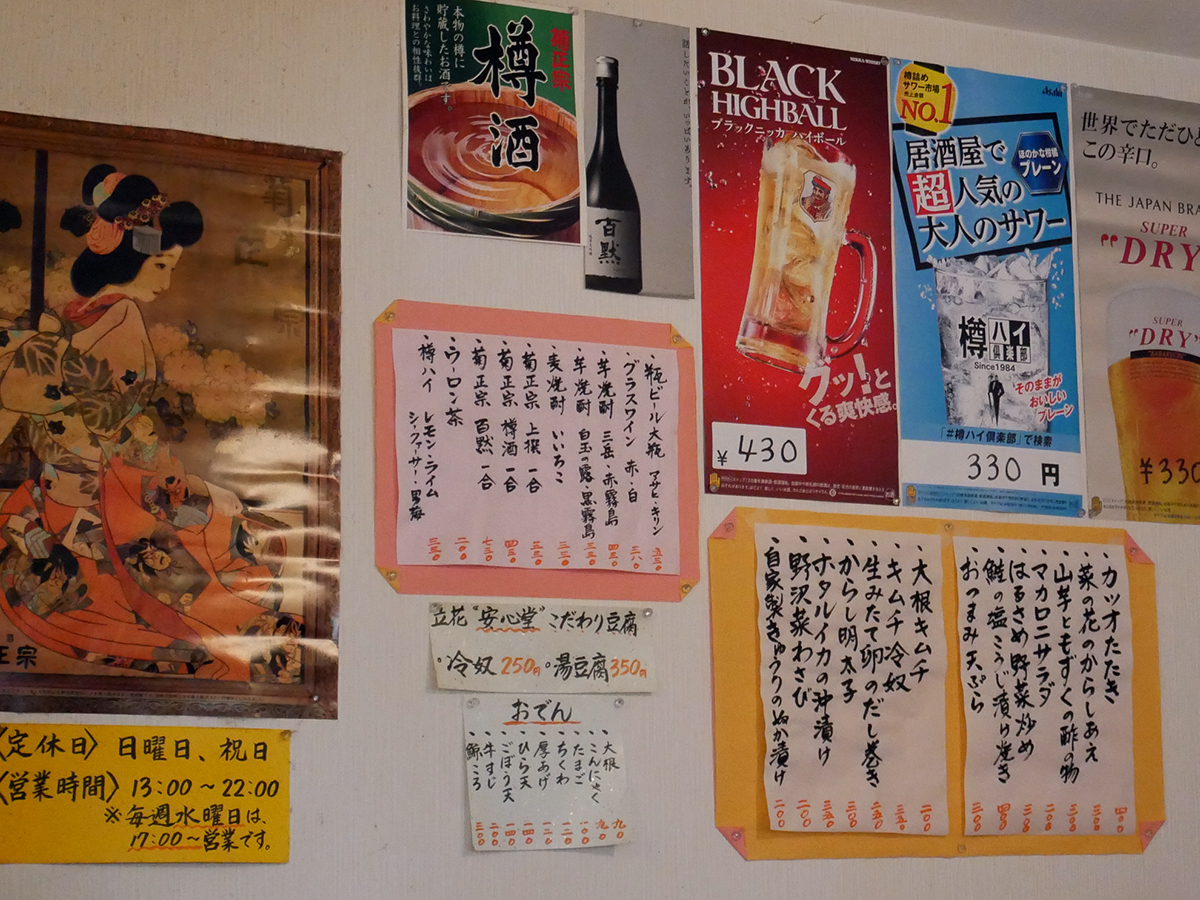 本物の樽に
貯蔵したお酒です。
さわやかな味わいは
お料理との相性抜群
菊正宗
樽酒
百黙
NIKKA WHISKY
BLACK
HIGHBALL
ブラックニッカ ハイボール
クッ!と
くる爽快感。
¥430
樽詰め
サワー市場
売上金額
NO.1
Asahi
居酒屋で
超人気の
大人のサワー
ほのかな柑橘
プレーン
樽ハイ
倶楽部
Since1984
そのままが
おいしい
プレーン
「#樽ハイ倶楽部」で検索
330円
世界でただひと
この辛口。
THE JAPAN BRA
SUPER
"DRY"
SUPER
"DRY"
¥330
菊正宗
正宗
・瓶ビール大瓶 アサヒ・キリン 五五〇
・グラスワイン 赤・白 三八〇
・芋焼酎 三岳・赤霧島 四三〇
・芋焼酎 白玉の露・黒霧島 三五〇
・麦焼酎 いいちこ 三三〇
・菊正宗 上撰 一合 三三〇
・菊正宗 樽酒 一合 四三〇
・菊正宗 百黙 一合 七三〇
・ウーロン茶 二〇〇
・樽ハイ レモン・ライム
シークァーサー・男梅 三三〇
立花"安心堂"こだわり豆腐
・冷奴250円・湯豆腐350円
おでん
・大根 九〇
・こんにゃく 九〇
・たまご 一〇〇
・ちくわ 一二〇
・厚あげ 一〇〇
・ひら天 一四〇
・ごぼう天 一四〇
・牛すじ 二〇〇
・鯨ころ 三〇〇
・カツオたたき 四〇〇
・菜の花のからしあえ 三〇〇
・山芋ともずくの酢の物 三〇〇
・マカロニサラダ 二〇〇
・はるさめ野菜炒め 三〇〇
・鮭の塩こうじ漬け焼き 四〇〇
・おつまみ天ぷら 三〇〇
・大根キムチ 二〇〇
・キムチ冷奴 三五〇
・生みたて卵のだし巻き 三五〇
・からし明太子 三〇〇
・ホタルイカの沖漬け 三五〇
・野沢菜わさび 二〇〇
・自家製きゅうりのぬか漬け 二〇〇
〈定休日〉日曜日、祝日
〈営業時間〉13:00〜22:00
※毎週水曜日は、
17:00〜営業です。